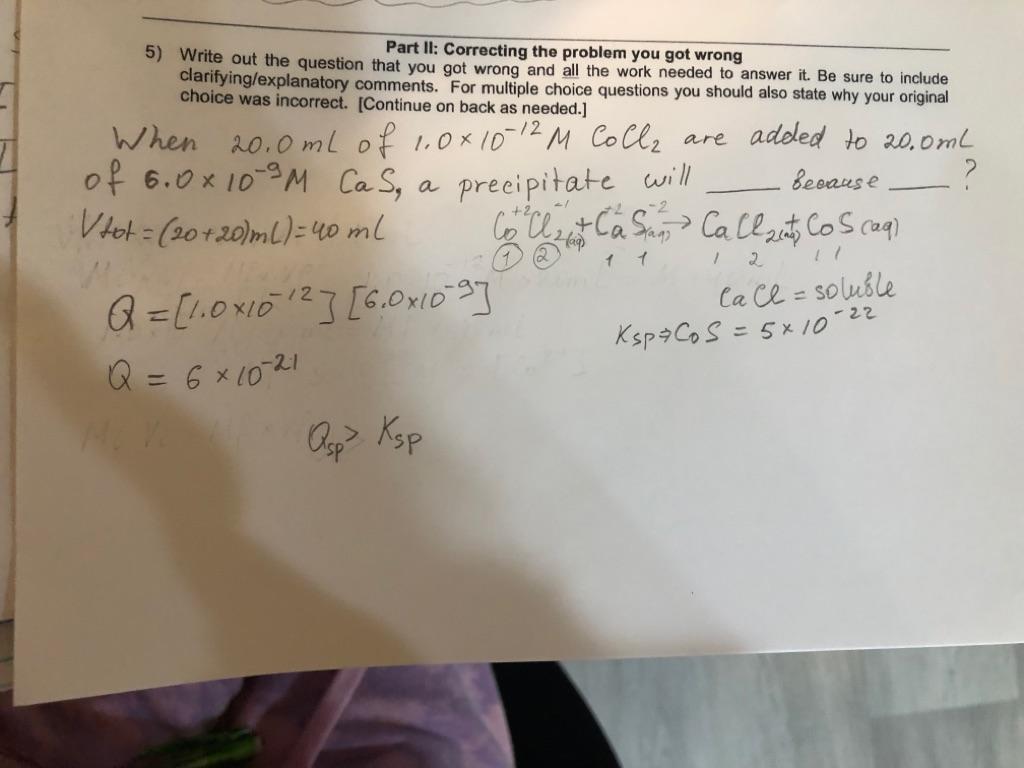 Part II: Correcting the problem you got wrong
5) Write out the question that you got wrong and all the work needed to answer it. Be sure to include
clarifying/explanatory comments. For multiple choice questions you should also state why your original
choice was incorrect. [Continue on back as needed.]
When 20.0 mL of 1.0 × 10⁻¹² M CoCl₂ are added to 20.0 mL
of 6.0 × 10⁻⁹ M CaS, a precipitate will ____ because ____ ?
Vtot = (20+20)mL) = 40 mL
Co⁺²Cl₂⁻¹(aq) + Ca⁺²S⁻²(aq) → CaCl₂(aq) + CoS(aq)
① ② 1 1 1 2 1 1
Q = [1.0 × 10⁻¹²] [6.0 × 10⁻⁹]
CaCl = soluble
Ksp ⇒ CoS = 5 × 10⁻²²
Q = 6 × 10⁻²¹
Qsp > Ksp